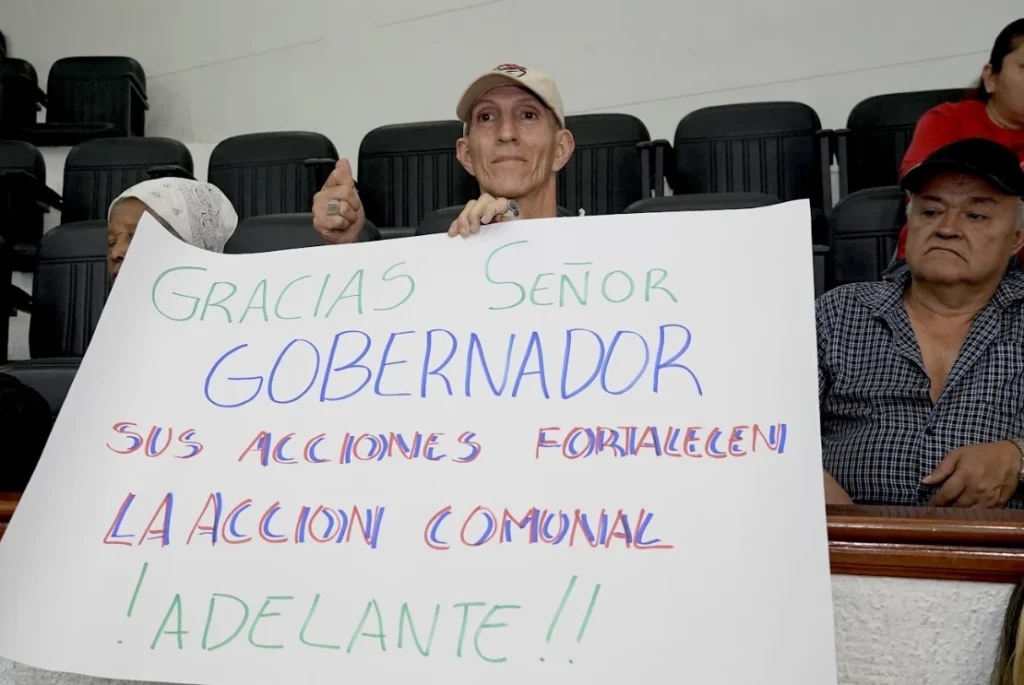 GRACIAS SEÑOR
GOBERNADOR
SUS ACCIONES FORTALECEN
LA ACCION COMUNAL
!ADELANTE!!